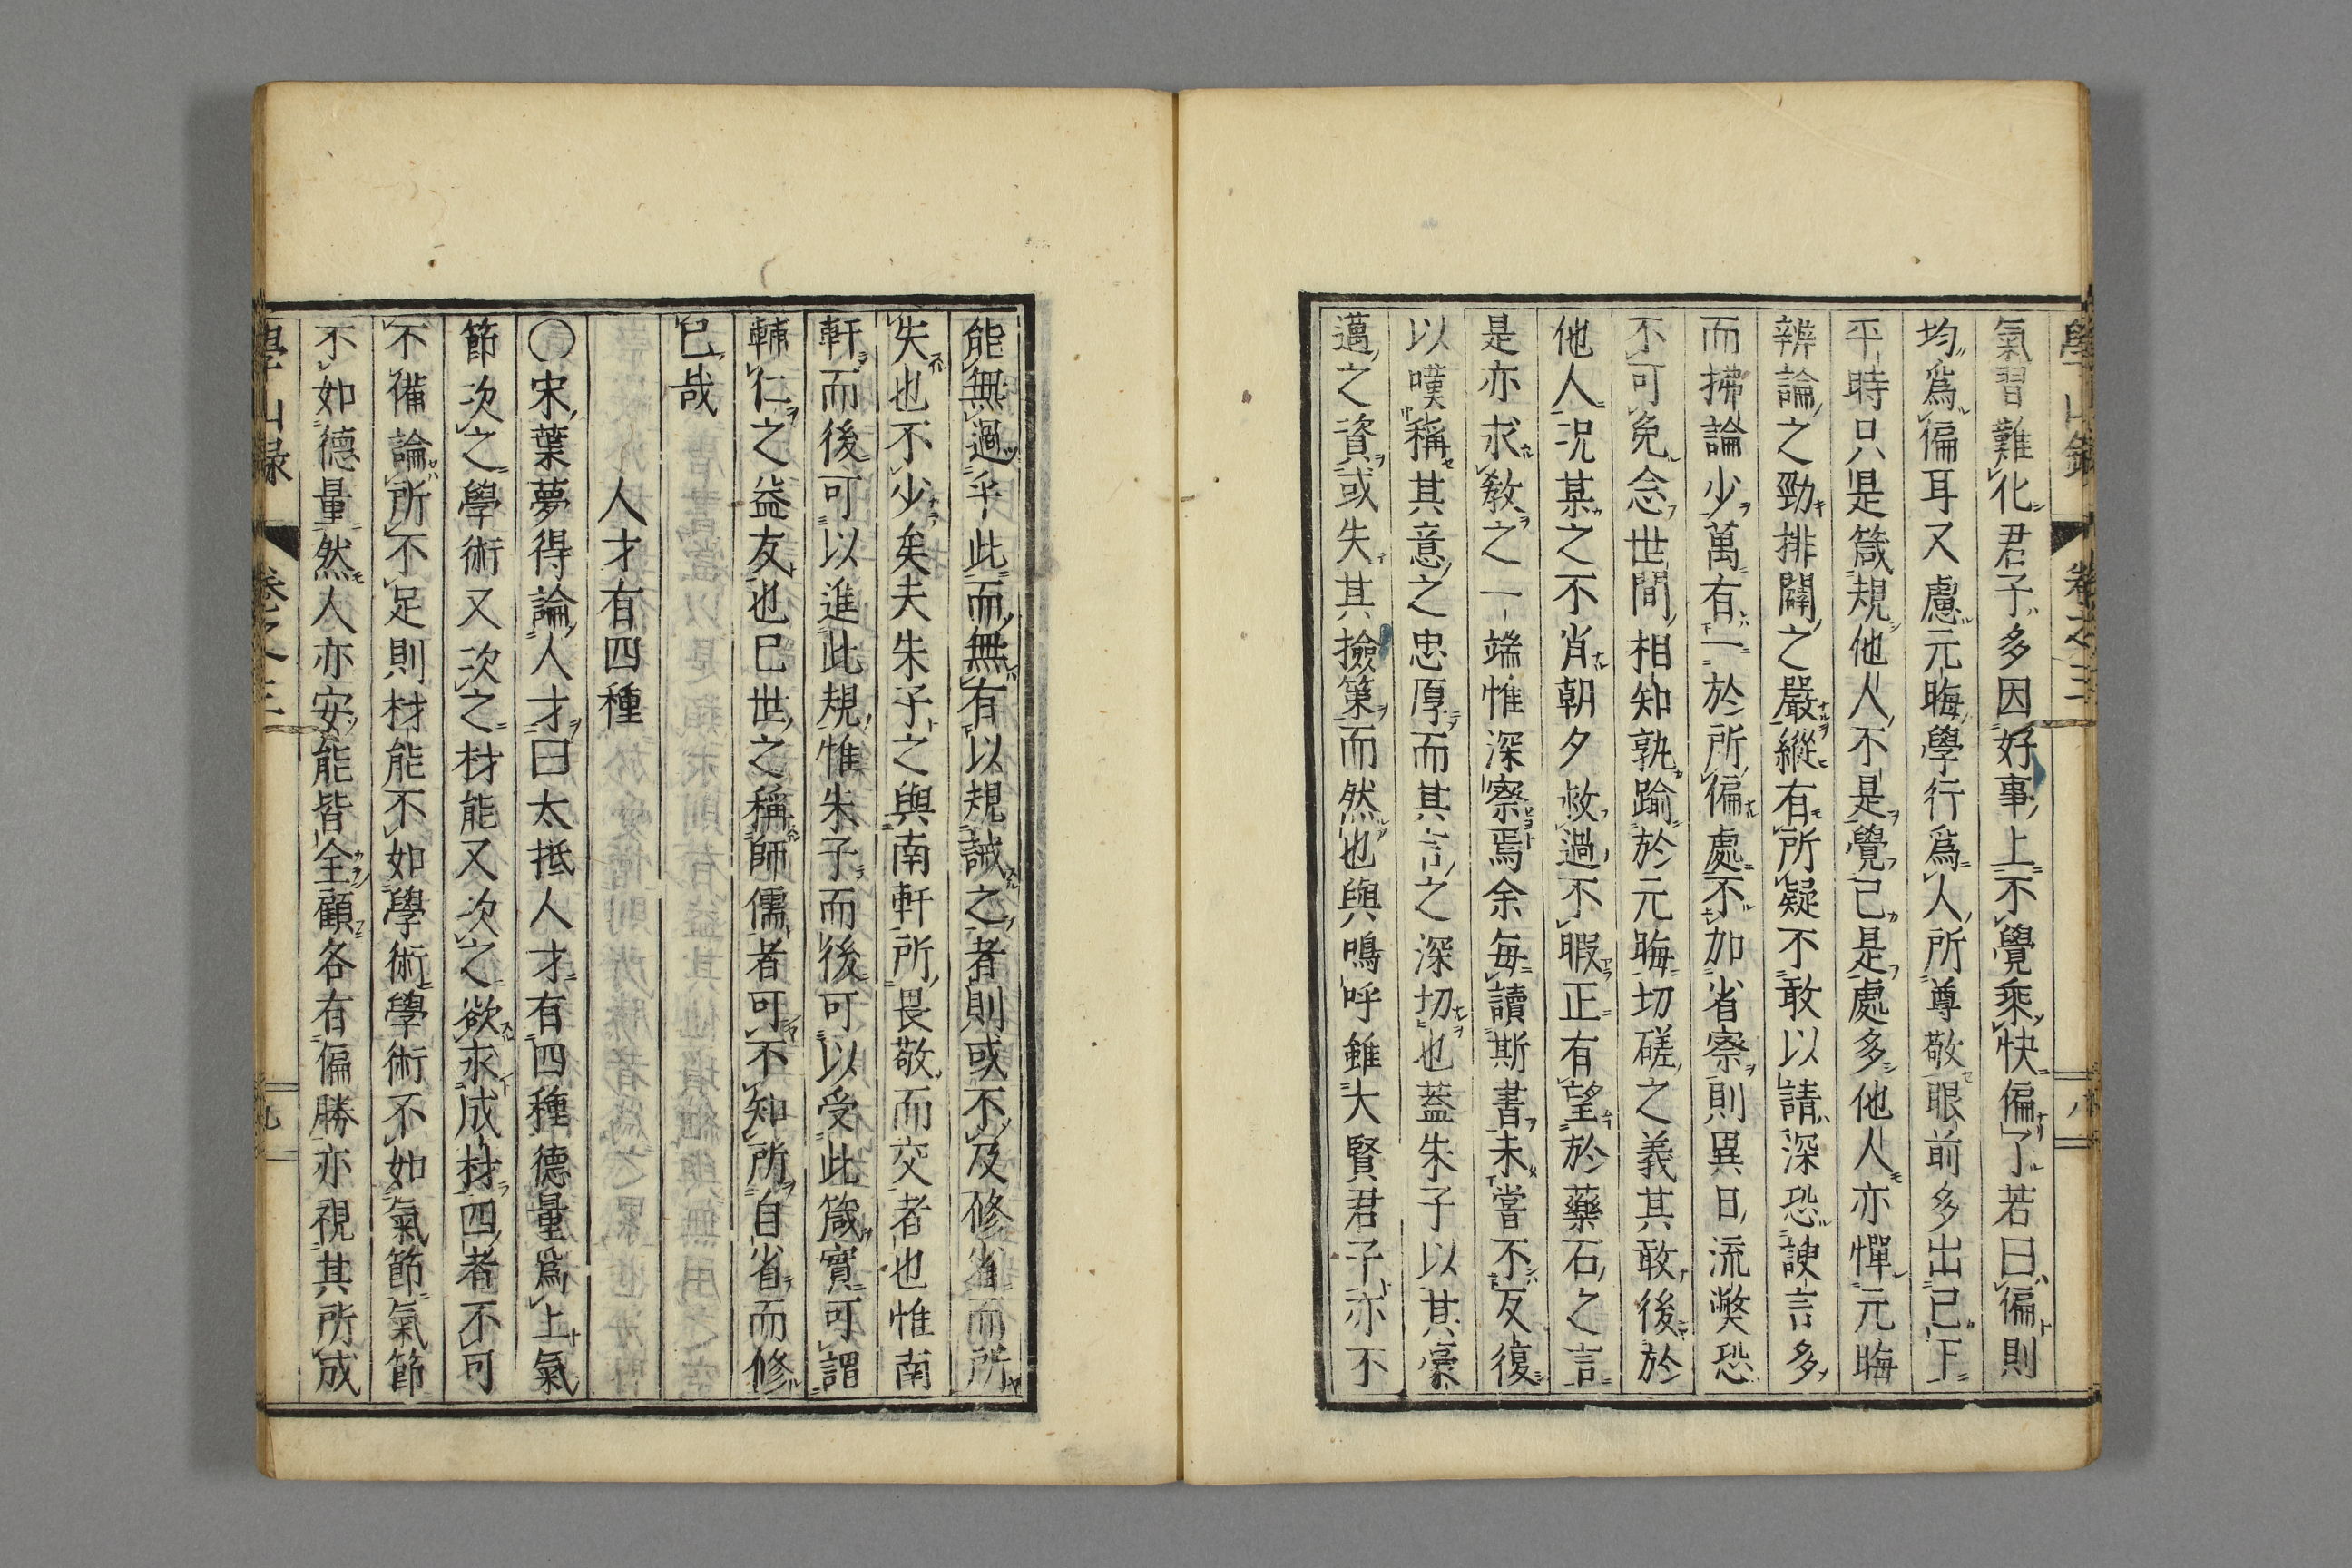 學山録 卷之三 八
氣習難化君子多因好事上不覺乘快偏了若曰偏則
均爲偏耳又慮元晦學行爲人所尊敬眼前多出己下
平時只是箴規他人不是覺己是處多他人亦憚元晦
辨論之勁排闢之嚴縱有所疑不敢以請深恐諛言多
而拂論少萬有一於所偏處不加省察則異日流弊恐
不可免念世間相知孰踰於元晦切磋之義其敢後於
他人況某之不肖朝夕救過不暇正有望於藥石之言
是亦求教之一端惟深察焉余每讀斯書未嘗不反復
以嘆稱其意之忠厚而其言之深切也蓋朱子以其豪
邁之資或失其撿第而然也與嗚呼雖大賢君子亦不
能無過乎此而無有以規誡之者則或不及修省而所
失也不少矣夫朱子之與南軒所畏敬而交者也惟南
軒而後可以進此規惟朱子而後可以受此箴實可謂
輔仁之益友也已世之稱師儒者可不知所自省而修
已哉
人才有四種
〇宋葉夢得論人才曰太抵人才有四種德量爲上氣
節次之學術又次之材能又次之欲求成材四者不可
不備論所不足則材能不如學術學術不如氣節氣節
不如德量然人亦安能皆全顧各有偏勝亦視其所成
學山録 卷之三 九